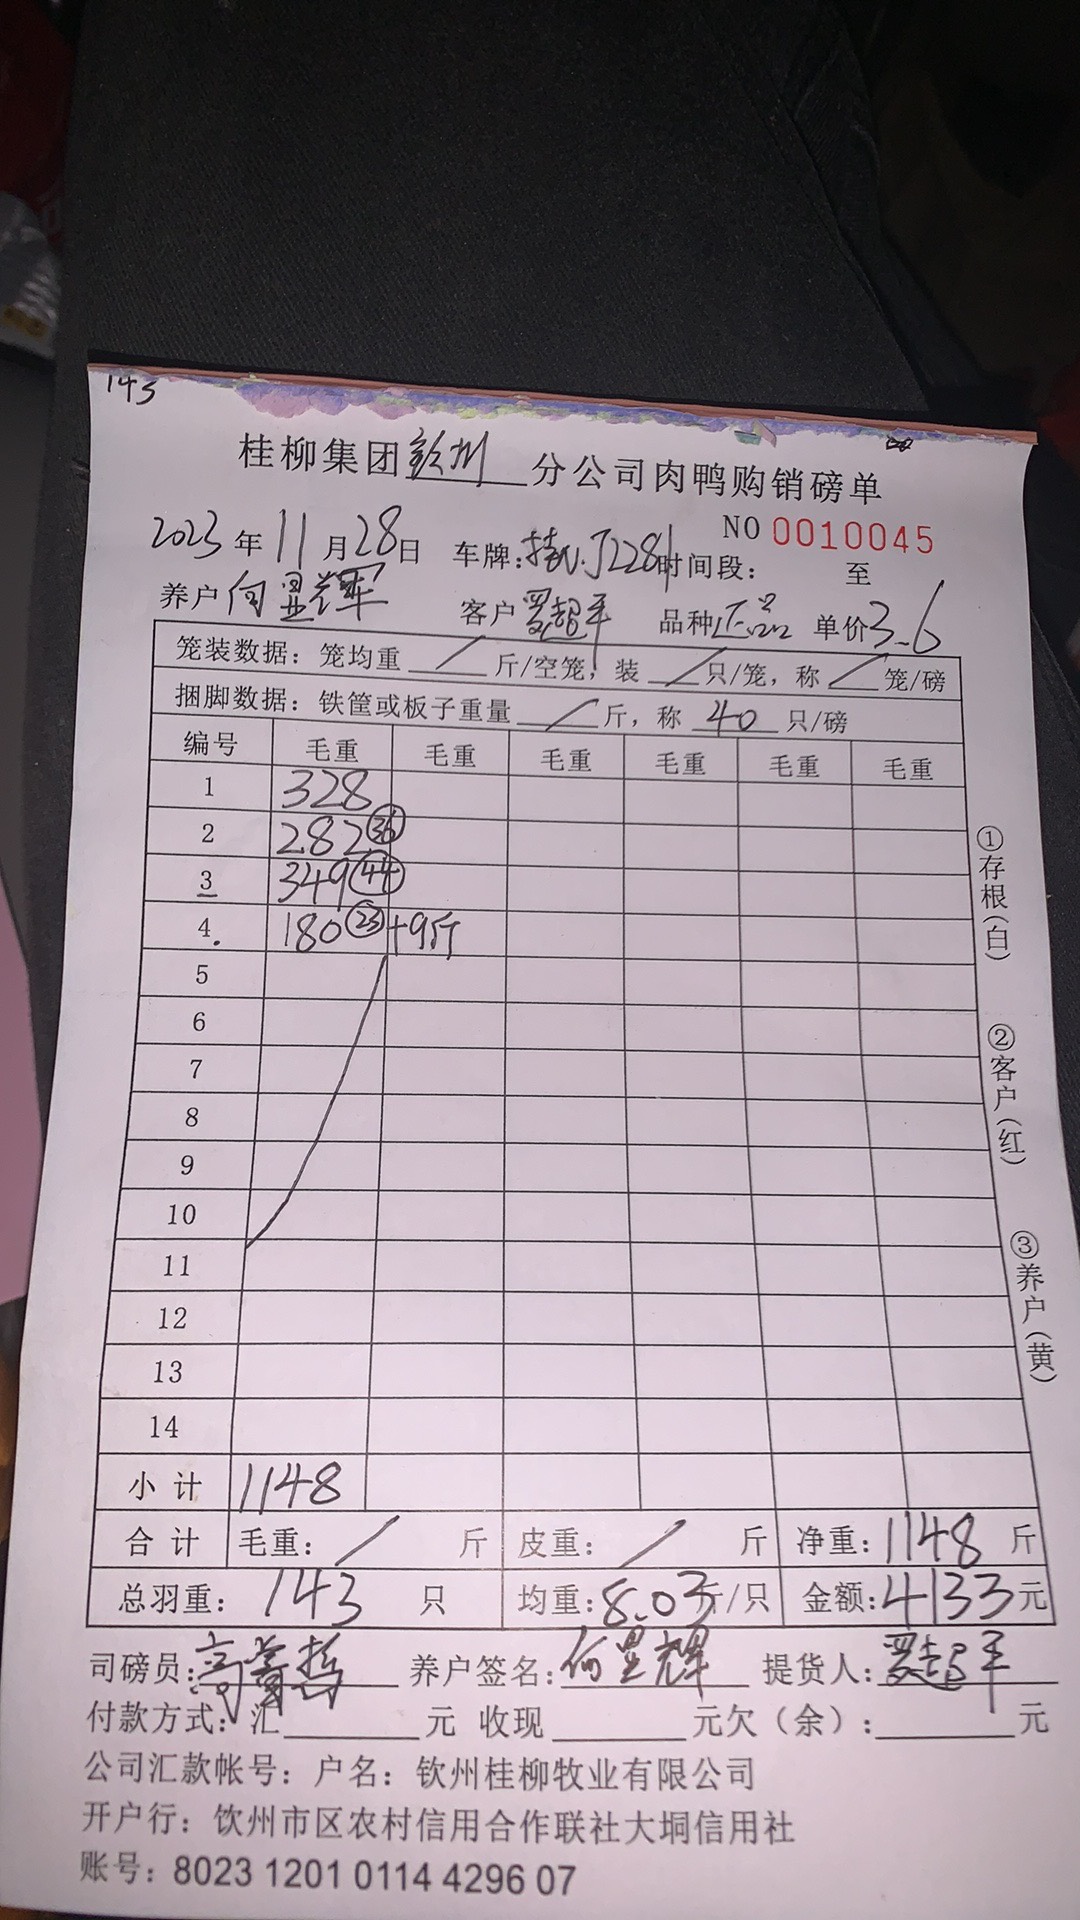 143
桂柳集团钦州分公司肉鸭购销磅单
NO 0010045
2023年11月28日 车牌:桂N.J2281 时间段: 至
养户何显辉 客户罗超平 品种正品 单价3.6
笼装数据:笼均重 / 斤/空笼,装 / 只/笼,称 / 笼/磅
捆脚数据:铁筐或板子重量 / 斤,称 40 只/磅
编号 毛重 毛重 毛重 毛重 毛重 毛重
1 328
2 282 36
3 349 44
4. 180 23 +9斤
5
6
7
8
9
10
11
12
13
14
小计 1148
合计 毛重: / 斤 皮重: / 斤 净重:1148斤
总羽重: 143 只 均重:8.03斤/只 金额:4133元
司磅员: 养户签名:何显辉 提货人:罗超平
付款方式:汇 元 收现 元欠(余): 元
公司汇款帐号:户名:钦州桂柳牧业有限公司
开户行:饮州市区农村信用合作联社大垌信用社
账号:8023 1201 0114 4296 07
①存根(白)
②客户(红)
③养户(黄)